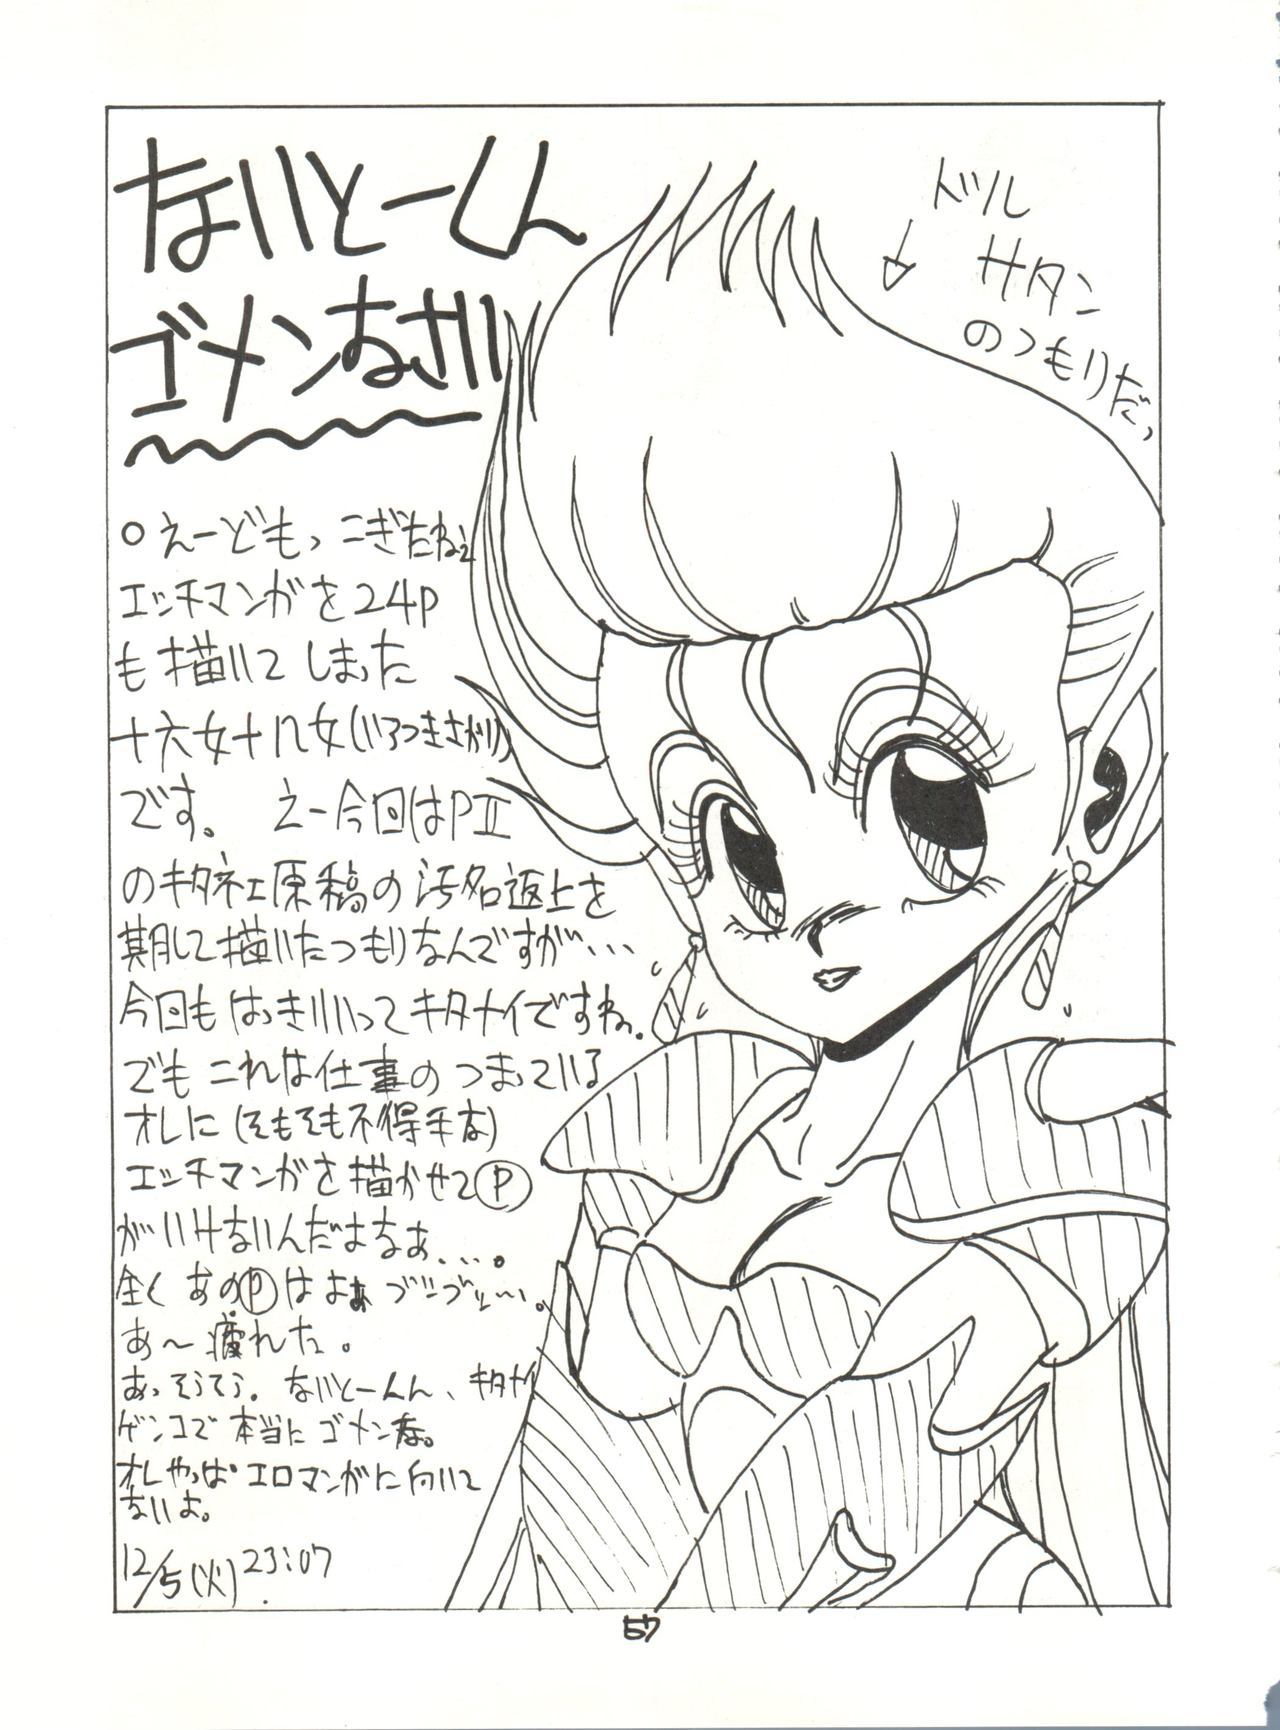 ないとーくん
ゴメンなさい
ドル
サタン
のつもりだっ
○えーどもっ こぎたねェ
エッチマンガを24P
も描いてしまった
十六女十八女(いろつきさかり)
です。 えー今回はPⅡ
のキタネェ原稿の汚名返上を
期して描いたつもりなんですが…
今回もはっきりいってキタナイですね。
でもこれは仕事のつまっている
オレに(そもそも不得手な)
エッチマンガを描かせてⓅ
がいけないんだよなぁ…。
全くあのⓅはよぉ ブツブツ…。
あ～疲れた。
あっそうそう。ないとーくん、キタナイ
ゲンコで本当にゴメンな。
オレやっぱエロマンガに向いて
ないよ。
12/5(火)23:07
57